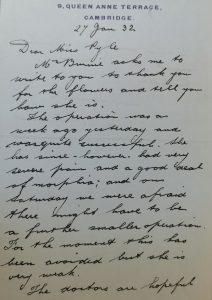 9, QUEEN ANNE TERRACE,
CAMBRIDGE.
27 Jan 32.
Dear Miss Pyle
Mrs Burnie asks me to
write to you to thank you
for the flowers and tell you
how she is.
The operation was a
week ago yesterday and
was quite successful. She
has since however had very
severe pain and a good deal
of morphia; and on
Saturday we were afraid
there might have to be
a further smaller operation.
For the moment this has
been avoided but she is
very weak.
The doctors are hopeful